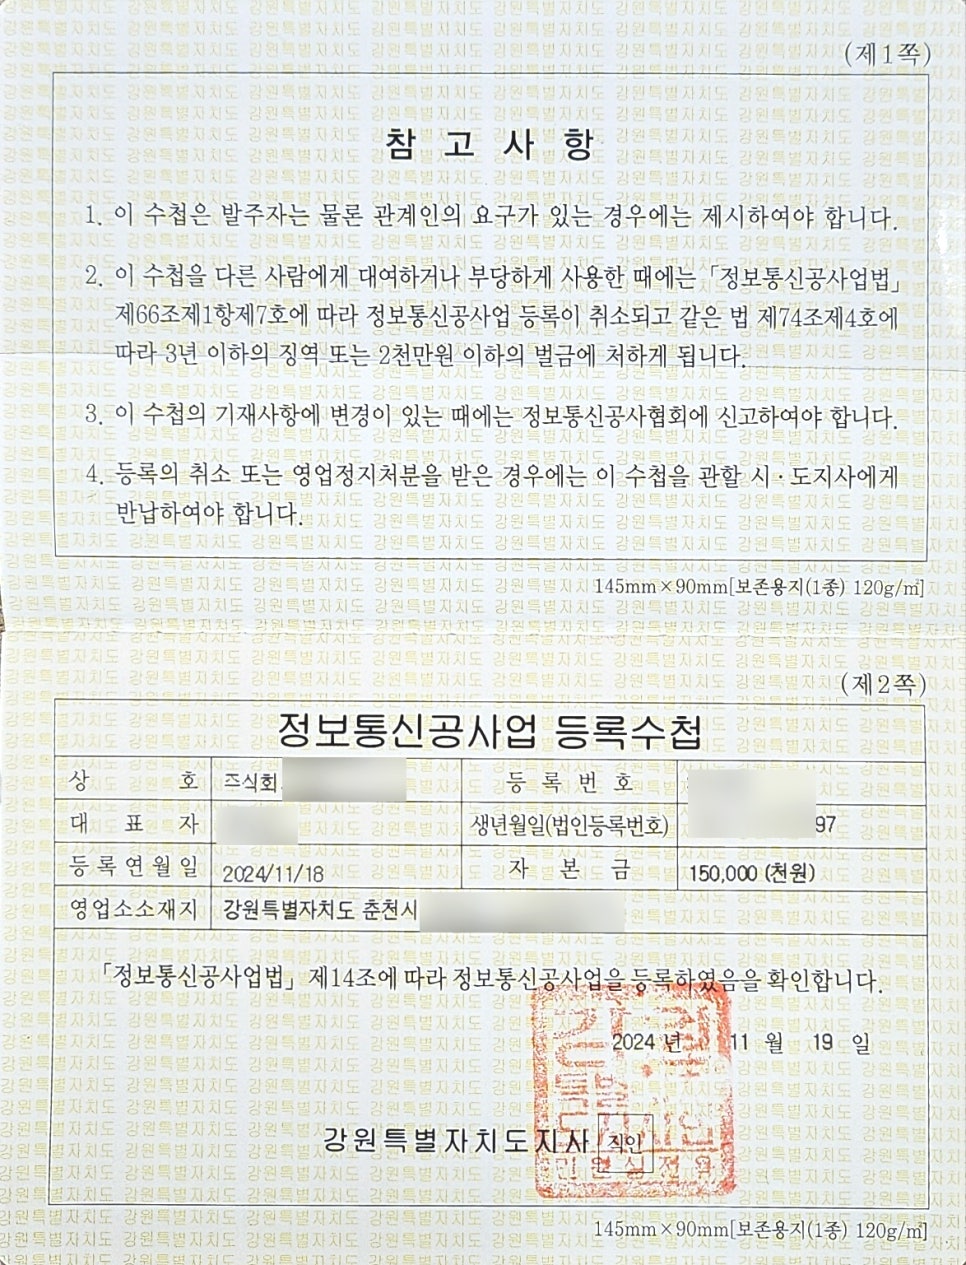 (제1쪽)
참 고 사 항
1. 이 수첩은 발주자는 물론 관계인의 요구가 있는 경우에는 제시하여야 합니다.
2. 이 수첩을 다른 사람에게 대여하거나 부당하게 사용한 때에는 「정보통신공사업법」
제66조제1항제7호에 따라 정보통신공사업 등록이 취소되고 같은 법 제74조제4호에
따라 3년 이하의 징역 또는 2천만원 이하의 벌금에 처하게 됩니다.
3. 이 수첩의 기재사항에 변경이 있는 때에는 정보통신공사협회에 신고하여야 합니다.
4. 등록의 취소 또는 영업정지처분을 받은 경우에는 이 수첩을 관할 시·도지사에게
반납하여야 합니다.
145mm×90mm[보존용지(1종) 120g/㎡]
(제2쪽)
정보통신공사업 등록수첩
상 호 주식회 등 록 번 호
대 표 자 생년월일(법인등록번호) 97
등록연월일 2024/11/18 자 본 금 150,000 (천원)
영업소소재지 강원특별자치도 춘천시
「정보통신공사업법」 제14조에 따라 정보통신공사업을 등록하였음을 확인합니다.
2024 년 11 월 19 일
강원특별자치도지사 직인
145mm×90mm[보존용지(1종) 120g/㎡]